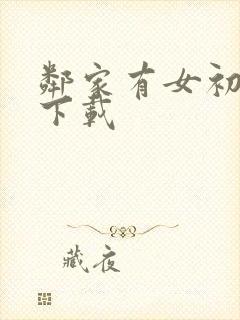 鄰家有女初
下載
藏夜